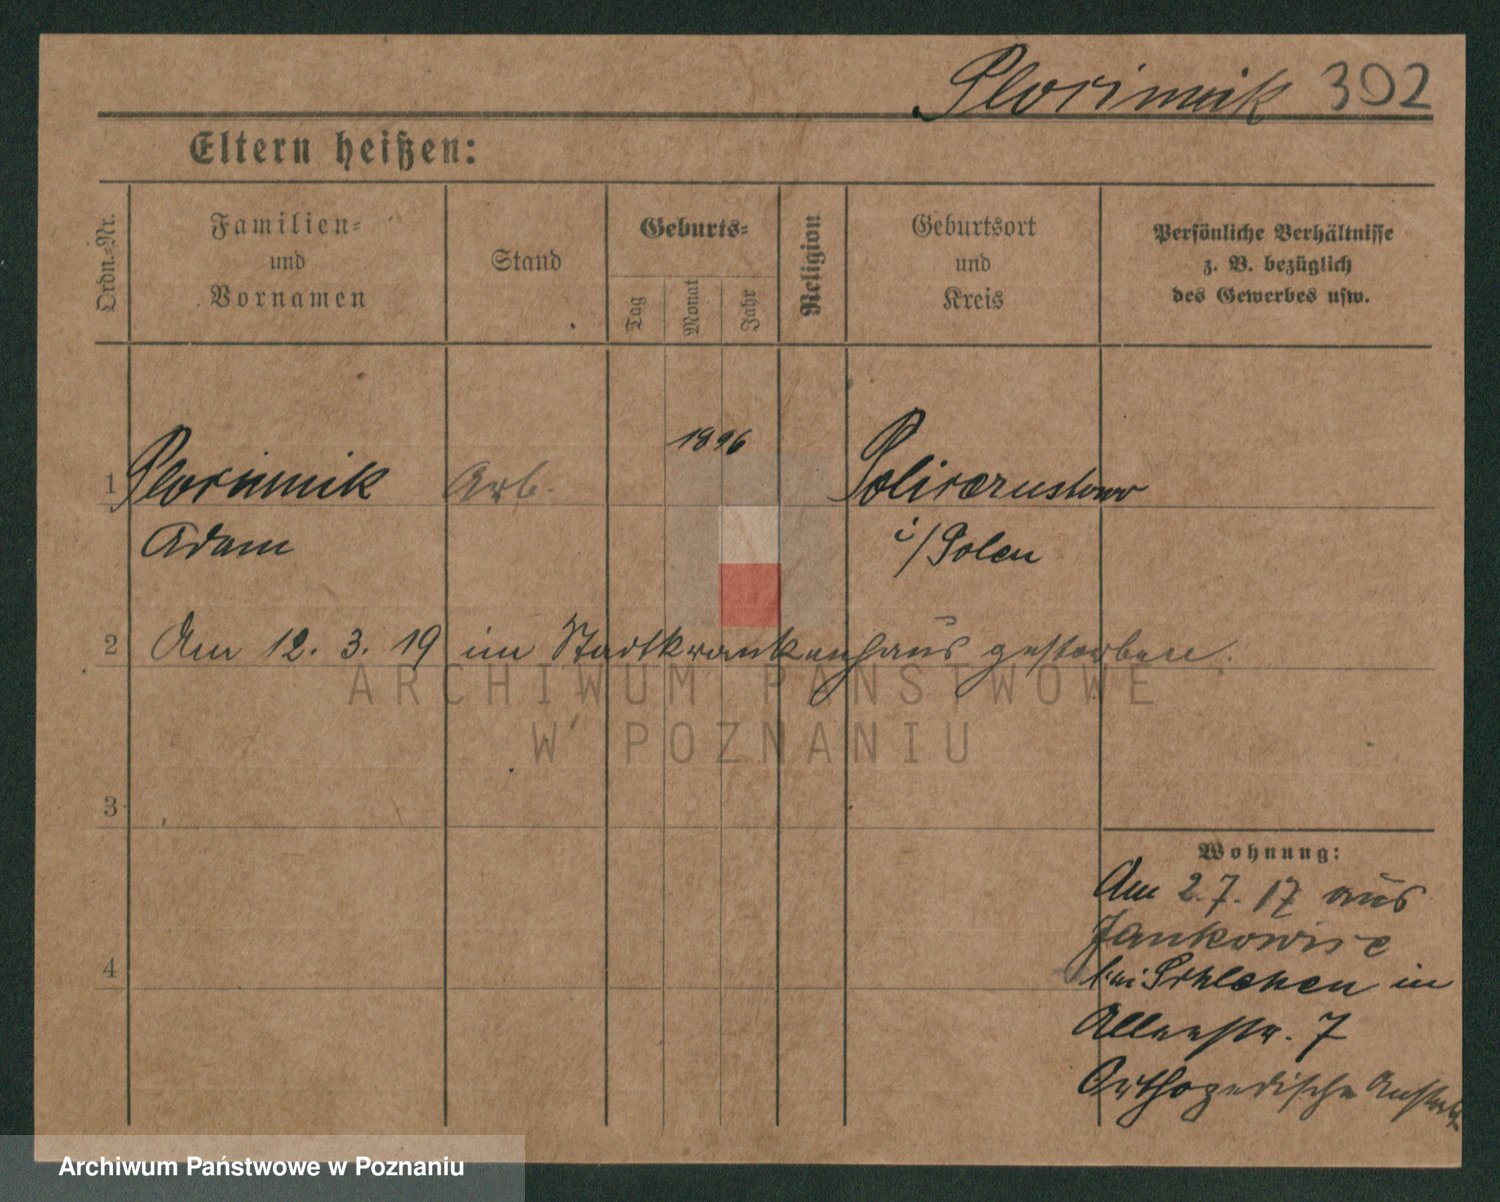 Plorinnik 302
Eltern heißen:
Ordn.=Nr.
Familien=
und
Vornamen
Stand
Geburts=
Tag
Monat
Jahr
Religion
Geburtsort
und
Kreis
Persönliche Verhältnisse
z. B. bezüglich
des Gewerbes usw.
1896
1 Plorinnik Arb.
Adam i/Polen
2 Am 12. 3. 19 im Stadtkrankenhaus gestorben.
ARCHIWUM PAŃSTWOWE
W POZNANIU
3
Wohnung:
Am 2.7.17 aus
Jankowice
4
bei Schlehen in
Alleestr. 7
Orthopedische Anstalt
Archiwum Państwowe w Poznaniu